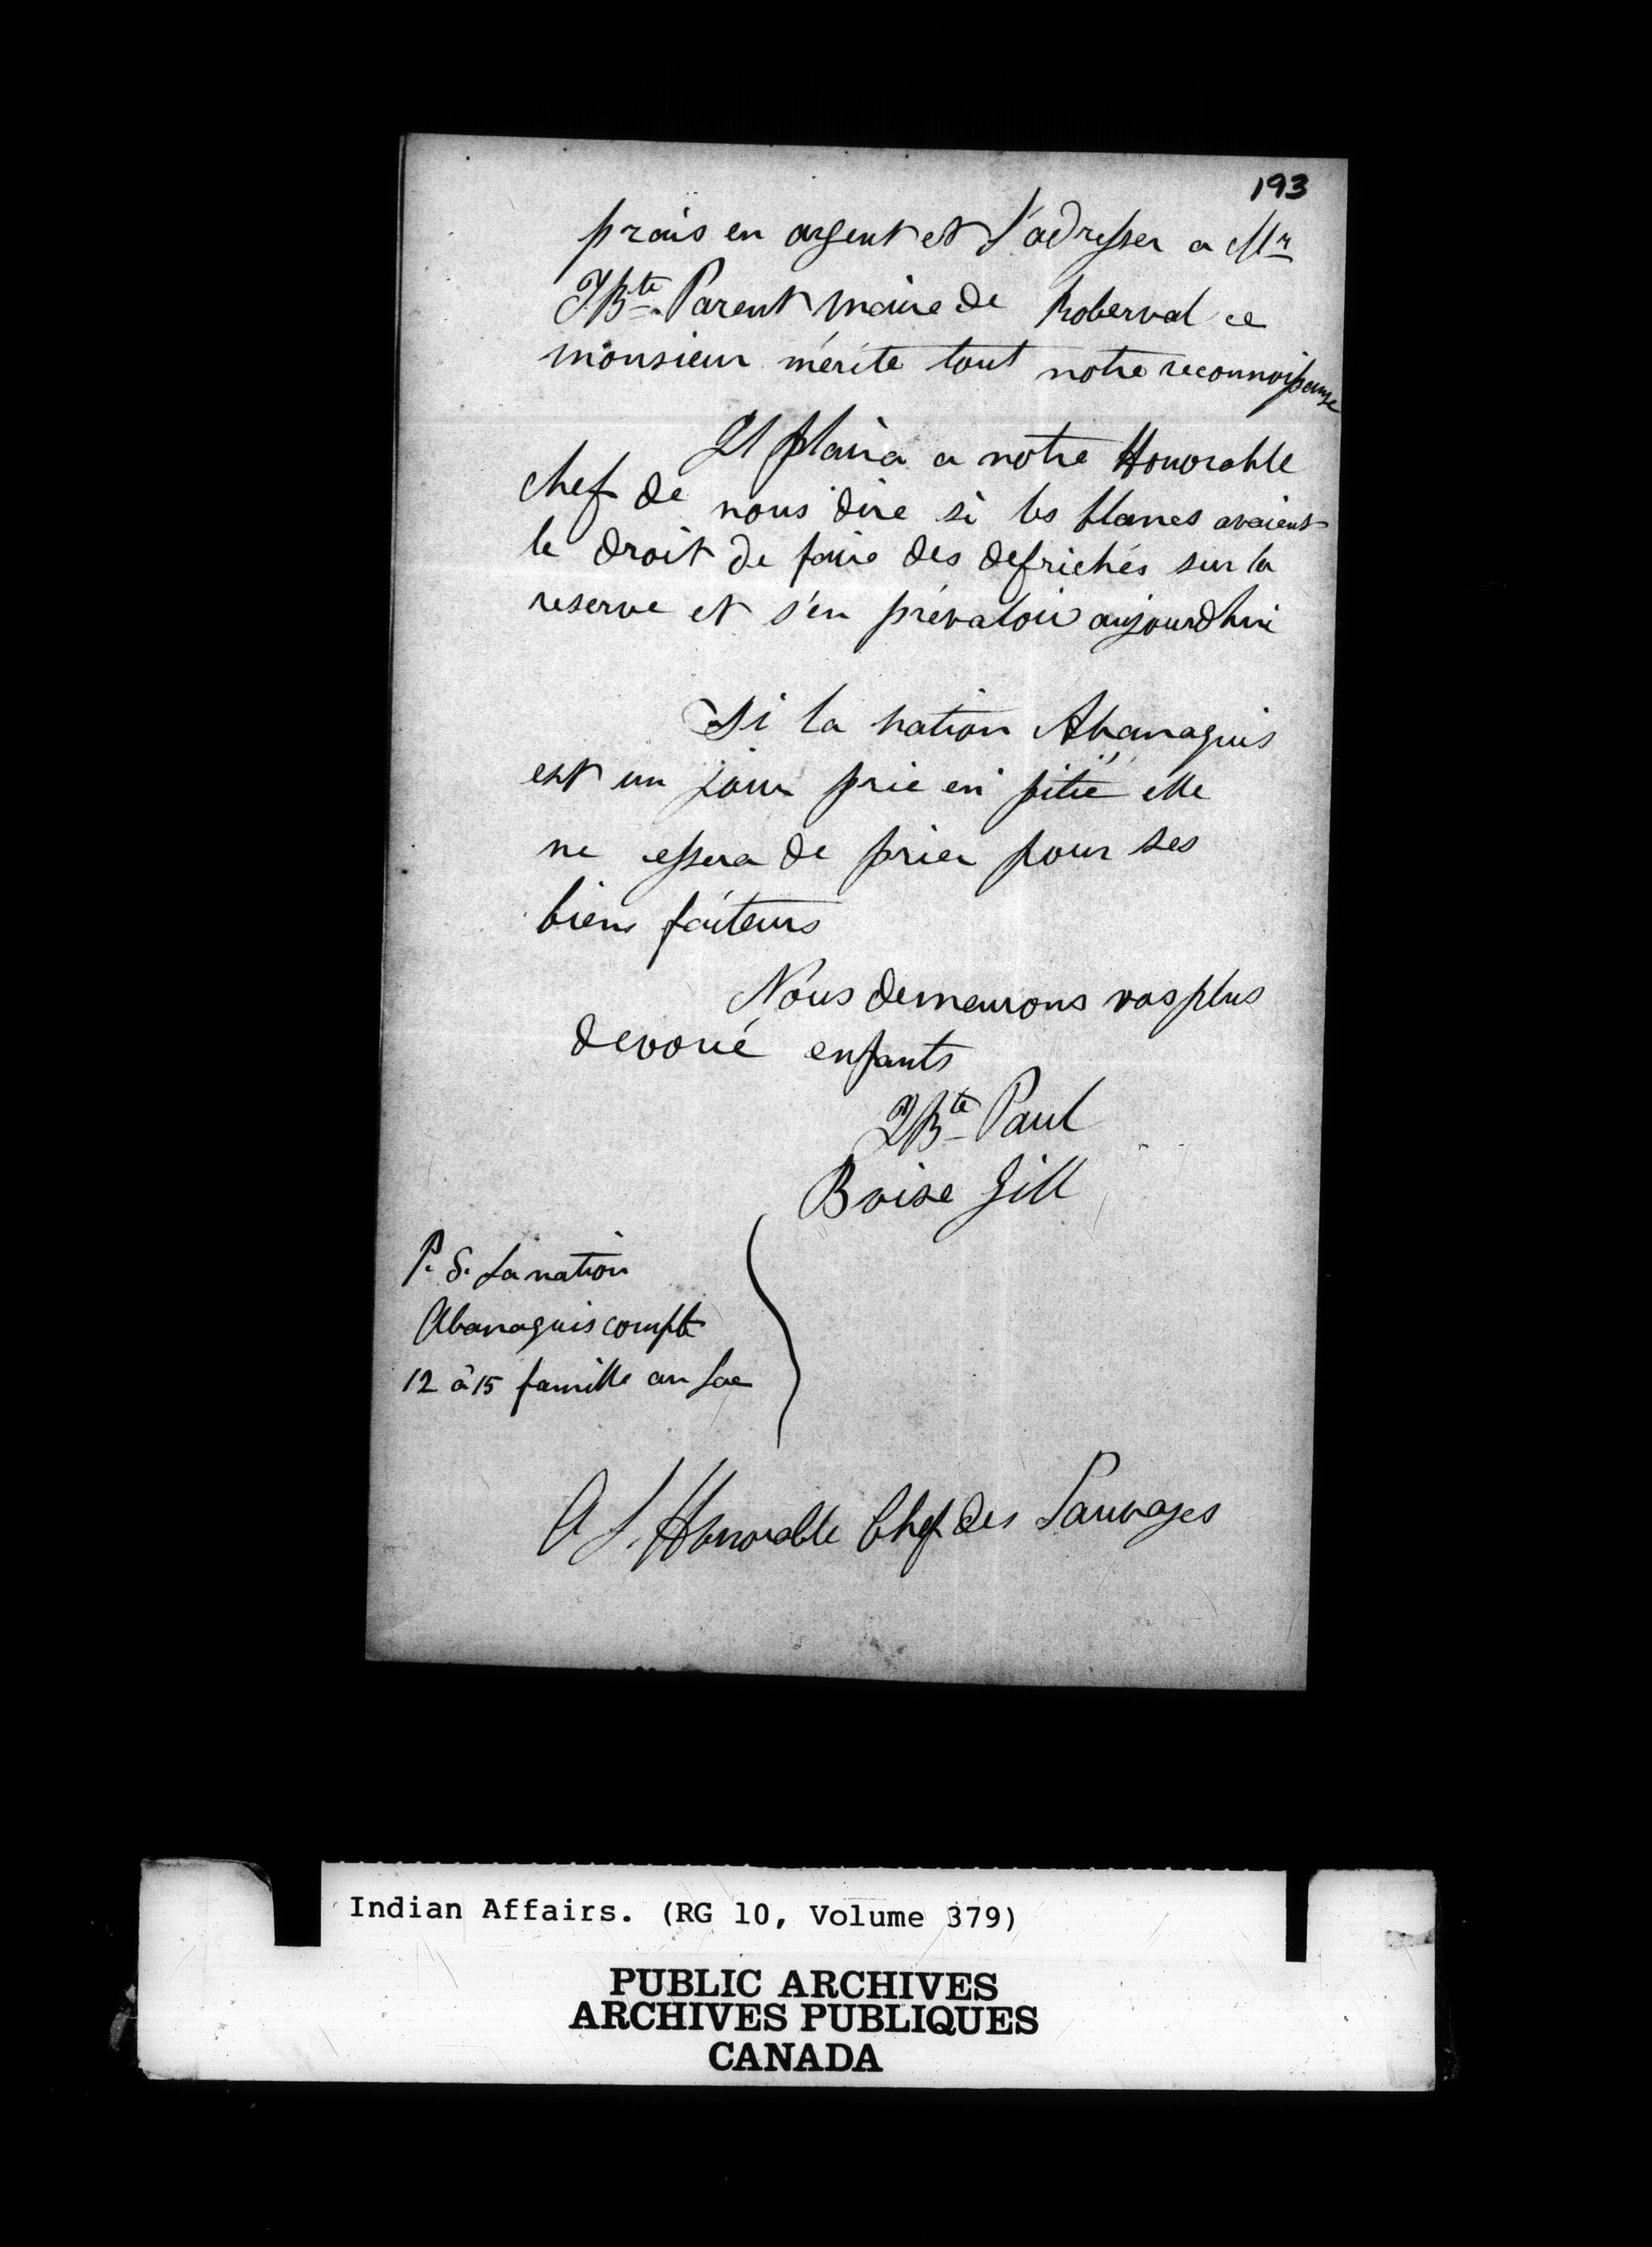 193
prais en argent et s'adresser a Mr
JBte Parent maire de Roberval ce
monsieur mérite tout notre reconnoissance
Il plaira a notre Honorable
chef de nous dire si les blancs avaient
le droit de faire des defrichés sur la
reserve et s'en prévaloir aujourdhui
Si la nation Abanaquis
est un jour prie en pitié elle
ne cessera de prier pour ses
biens faiteurs
Nous demeurons vos plus
devoué enfants
JBte Paul
Boise Gill
P. S. La nation
Abanaquis compte
12 à 15 famille au Lac
A L'Honorable Chef des Sauvages
Indian Affairs. (RG 10, Volume 379)
PUBLIC ARCHIVES
ARCHIVES PUBLIQUES
CANADA